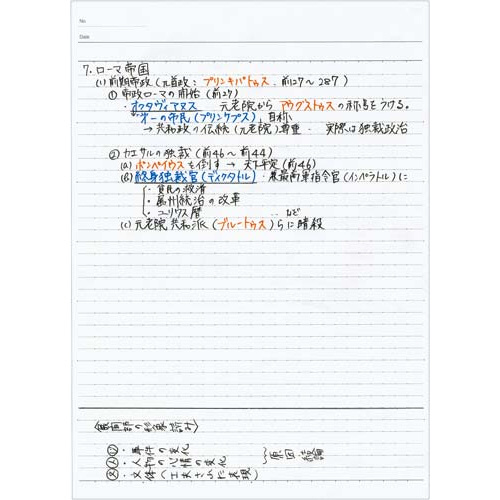 No.
Date
7. ローマ帝国
(1) 前期帝政(元首政:プリンキパトゥス、前27〜287)
① 帝政ローマの開始(前27)
・オクタヴィアヌス 元老院からアウグストゥスの称号をうける。
第一の市民(プリンケプス)、自称
→共和政の伝統(元老院)尊重。実際は独裁政治
② カエサルの独裁(前46〜前44)
(a) ポンペイウスを倒す→天下平定(前46)
(b) 終身独裁官(ディクタトル)・兼最高軍指令官(インペラトル)に
・貧民の救済
・属州統治の改革
・ユリウス暦 … など
(c) 元老院共和派(ブルートゥス)らに暗殺
・事件の変化
・人物の心情の変化
・文体(工夫された表現)
原因 結論